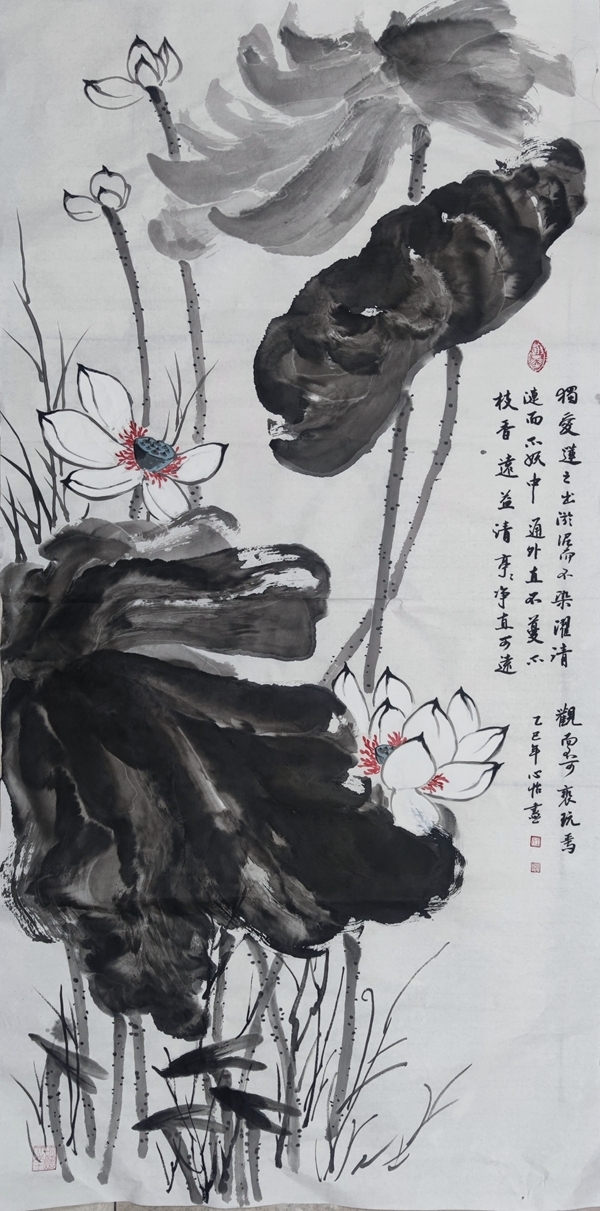 獨愛蓮之出淤泥而不染濯清
漣而不妖中通外直不蔓不
枝香遠益清亭〻净直可遠
觀而不可褻玩焉
乙巳年心怡畫